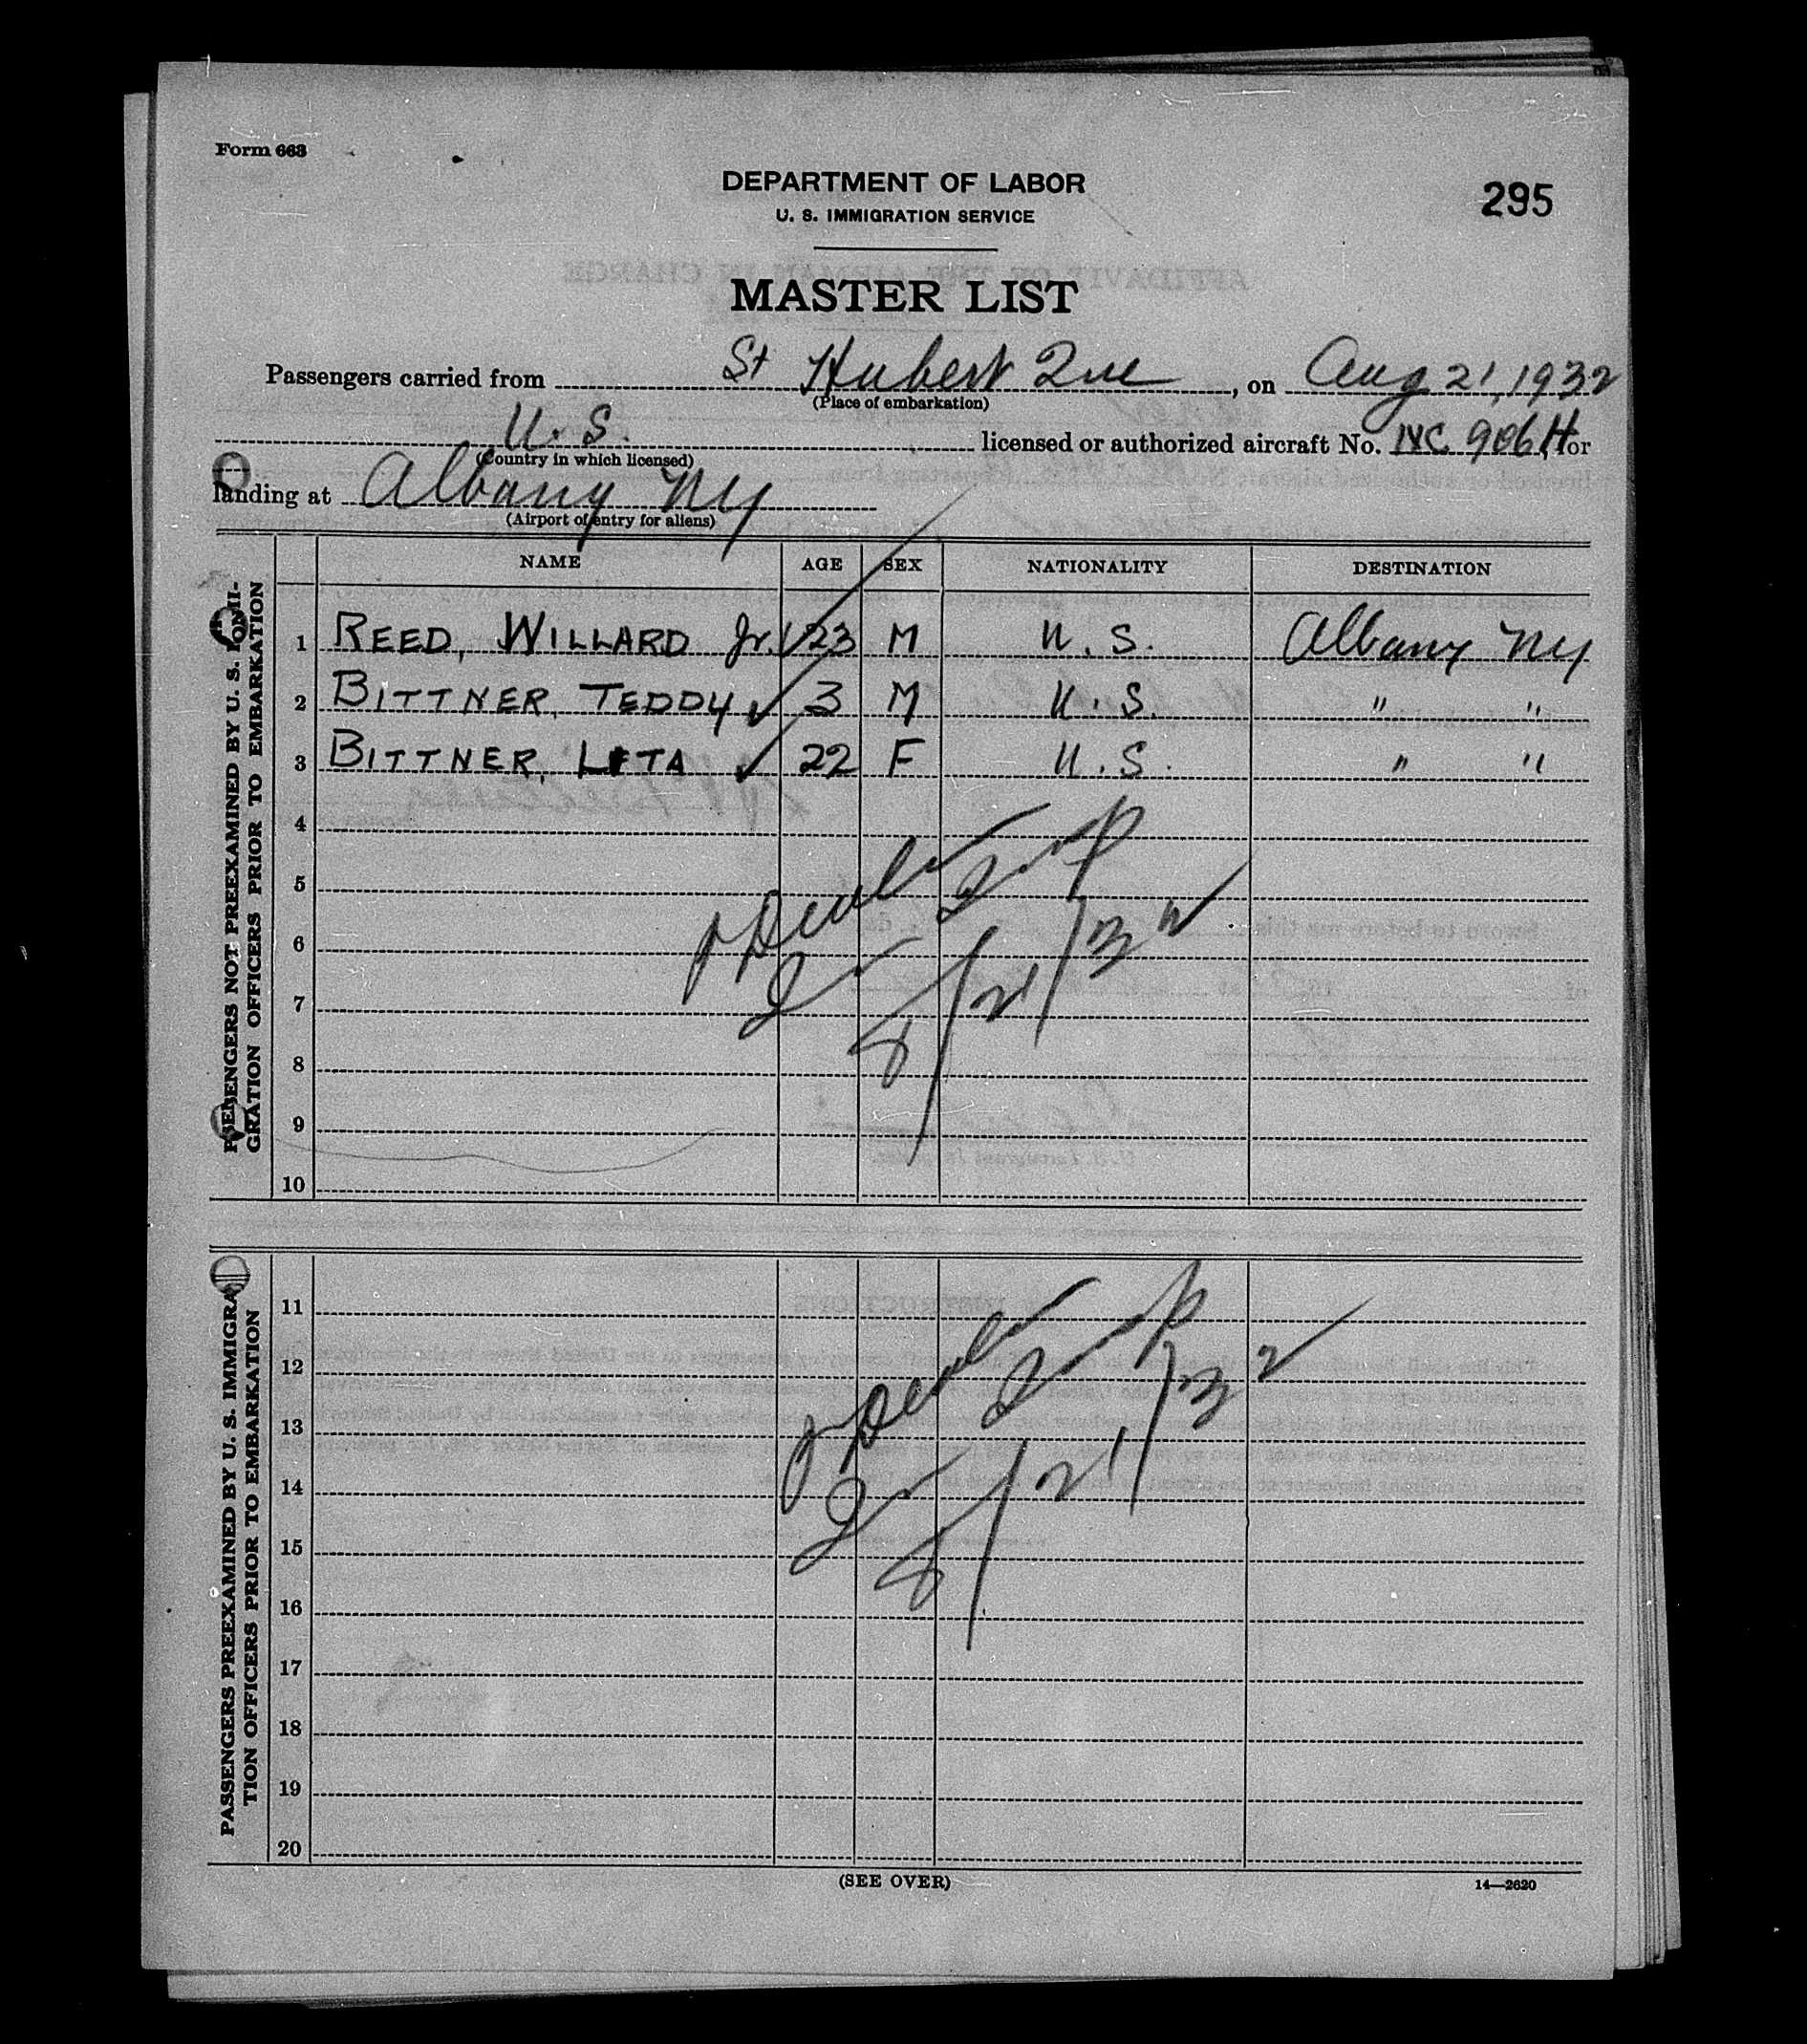 Form 663
DEPARTMENT OF LABOR
U. S. IMMIGRATION SERVICE
295
MASTER LIST
Passengers carried from St Hubert Que, on Aug 21, 1932
(Place of embarkation)
U. S. licensed or authorized aircraft No. NC 906H, or
(Country in which licensed)
landing at Albany NY
(Airport of entry for aliens)
NAME AGE SEX NATIONALITY DESTINATION
1 REED, WILLARD Jr. ✓ 23 M U. S. Albany NY
2 BITTNER, TEDDY ✓ 3 M U. S. " "
3 BITTNER, LITA ✓ 22 F U. S. " "
4
5
6
7
8
9
10
8/21/32
PASSENGERS NOT PREEXAMINED BY U. S. IMMI-
GRATION OFFICERS PRIOR TO EMBARKATION
11
12
13
14
15
16
17
18
19
20
8/21/32
PASSENGERS PREEXAMINED BY U. S. IMMIGRA-
TION OFFICERS PRIOR TO EMBARKATION
(SEE OVER)
14—2620